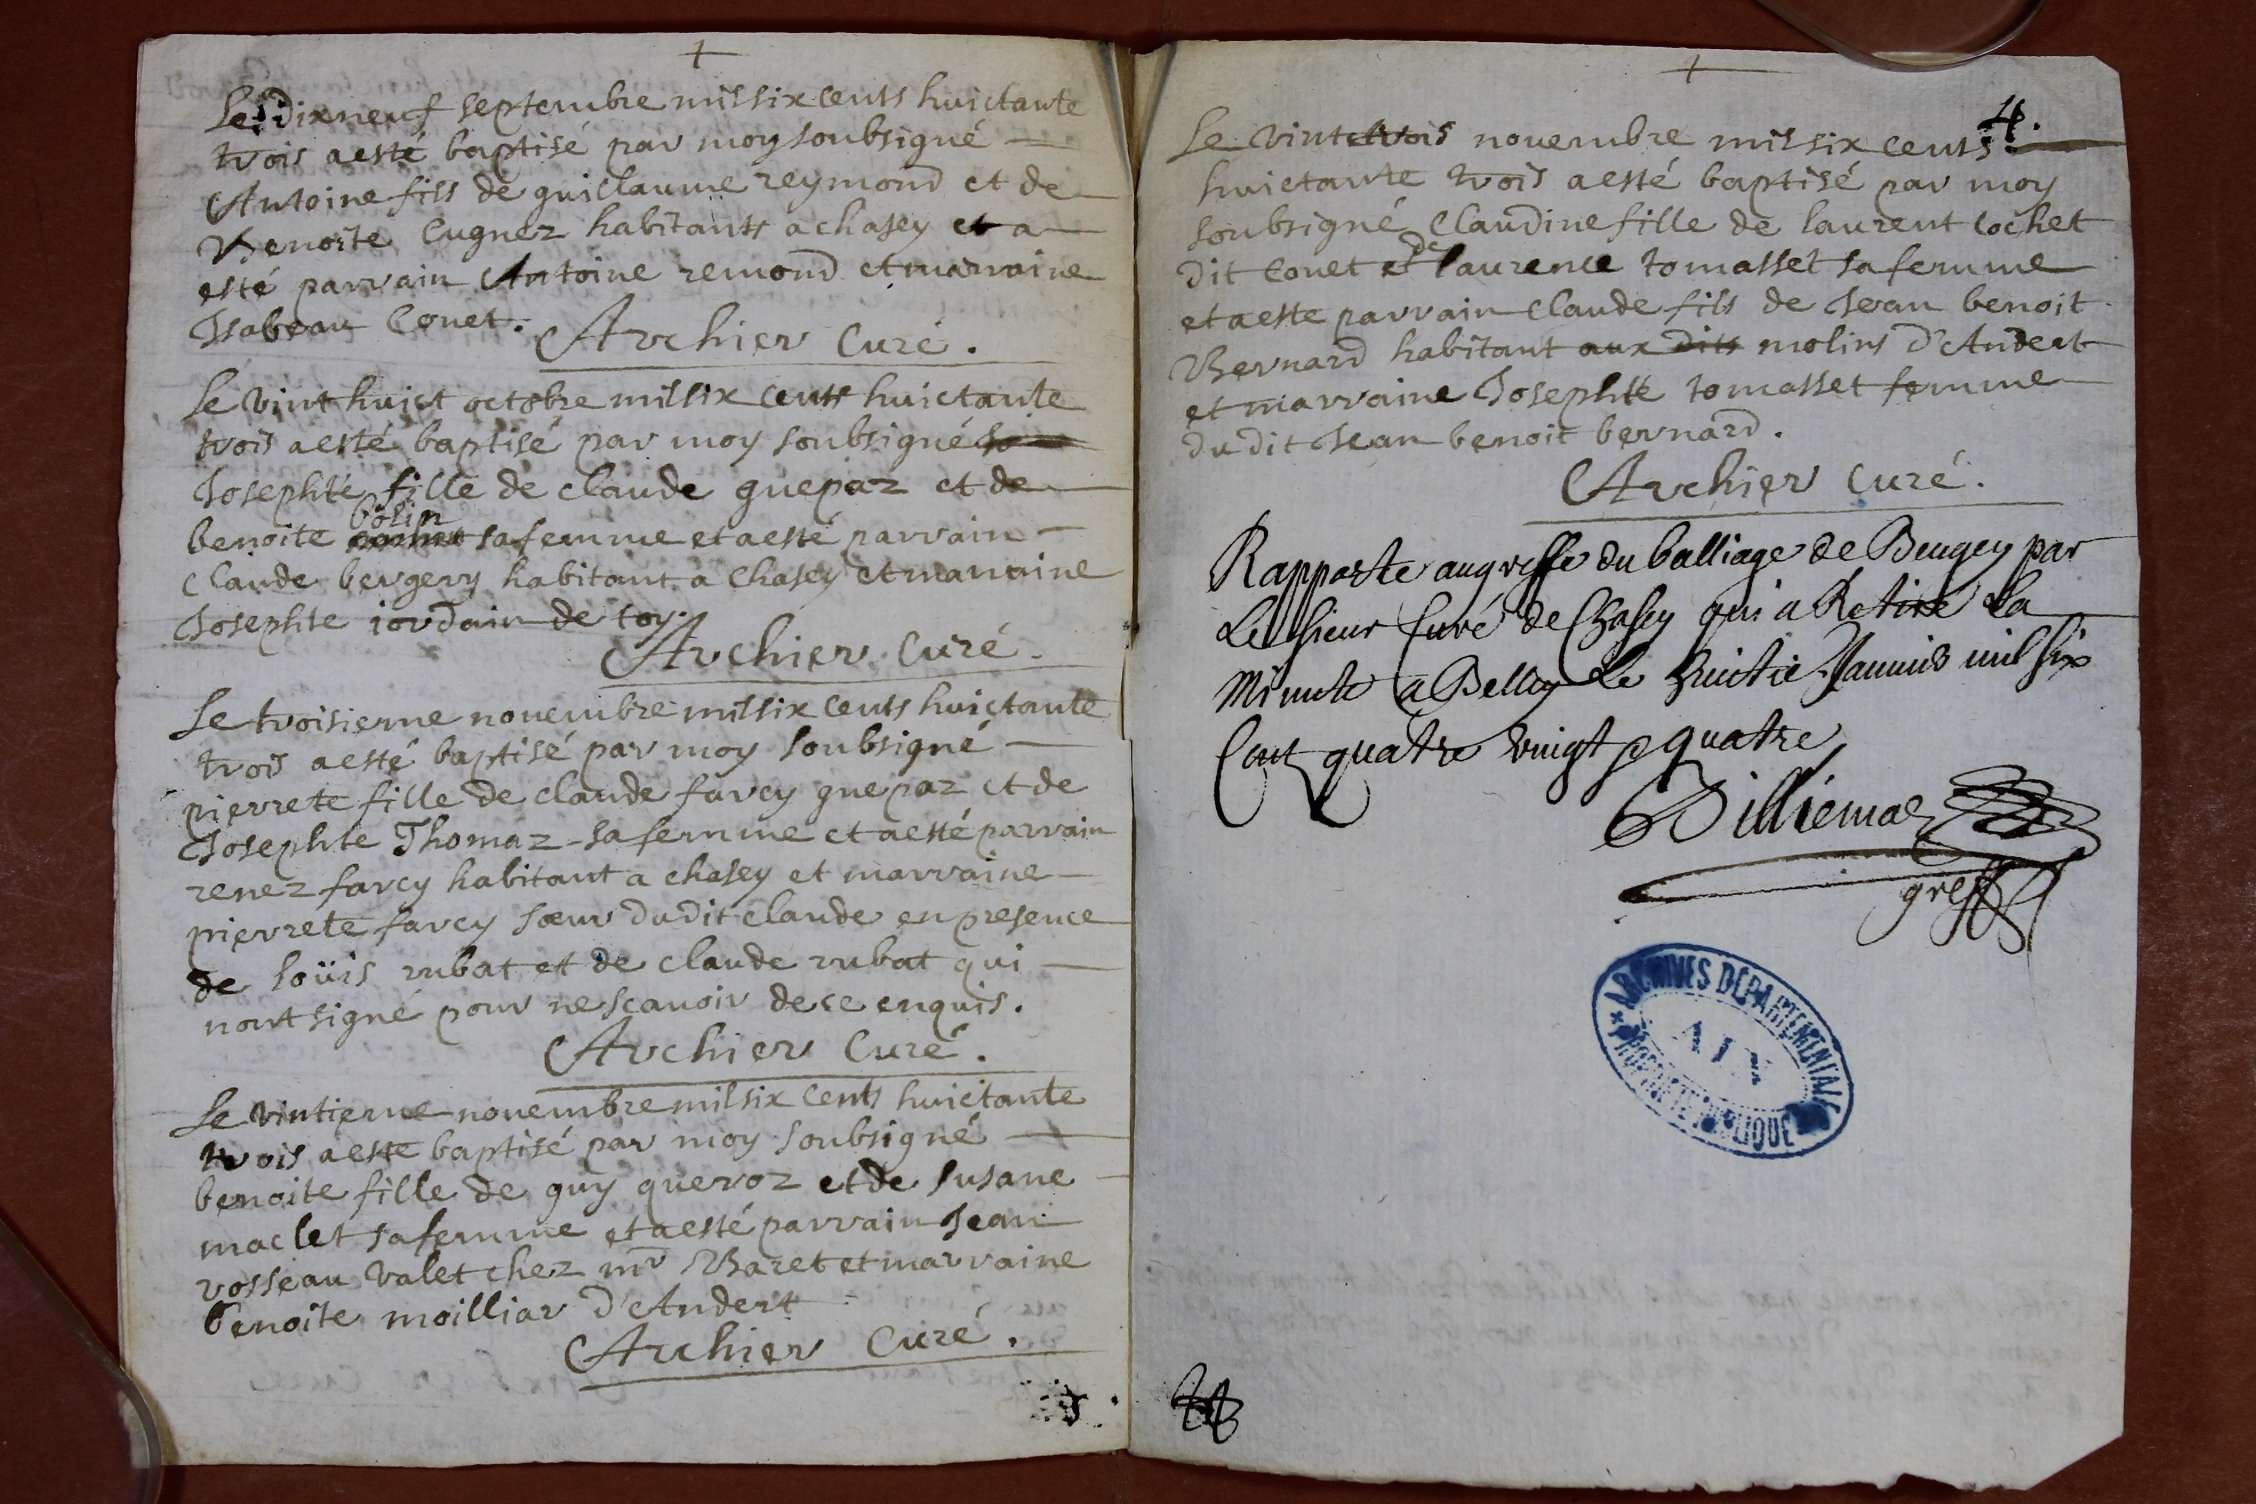 Le dixneuf septembre mil six cents huictante
trois a esté baptisé par moy soubsigné
Antoine fils de guillaume reymond et de
Benoite Cugnez habitants a chasey et a
esté parrain Antoine remond et marraine
Isabeau Couet.
Archier Curé.
Le vint huict octobre mil six cents huictante
trois a esté baptisé par moy soubsigné
Josephte fille de claude guepaz et de
bolin
benoite sa femme et a esté parrain
Claude bergery habitant a Chasey et marraine
Josephte iordain de toy.
Archier Curé.
Le troisieme nouembre mil six cents huictante
trois a esté baptisé par moy soubsigné
pierrete fille de claude farcy guepaz et de
Josephte Thomaz sa femme et a esté parrain
renez farcy habitant a chasey et marraine
pierrete farcy sœur dudit claude en presence
de loüis rubat et de claude rubat qui
nont signé pour ne scauoir de ce enquis.
Archier Curé.
Le vintieme nouembre mil six cents huictante
trois a esté baptisé par moy soubsigné
benoite fille de guy queroz et de susane
maclet sa femme et a esté parrain Jean
rosseau valet chez mr Baret et marraine
benoite moilliar d'Andert
Archier Curé.
4.
Le vint trois nouembre mil six cents
huictante trois a esté baptisé par moy
soubsigné Claudine fille de laurent cochet
de
dit Couet et laurence tomasset sa femme
et a esté parrain claude fils de Jean benoit
Bernard habitant aux dits molins d'Andert
et marraine Josephte tomasset femme
dudit Jean benoit bernard.
Archier Curé.
Rapporte au greffe du balliage de Beugey par
Le sieur Curé de Chasey qui a Retiré la
Minute a Belley Le huictie Januier mil six
Cent quatre vingt quatre
Billiemaz
greff
ARCHIVES DEPARTEMENTALES
AIN
PROPRIETE PUBLIQUE